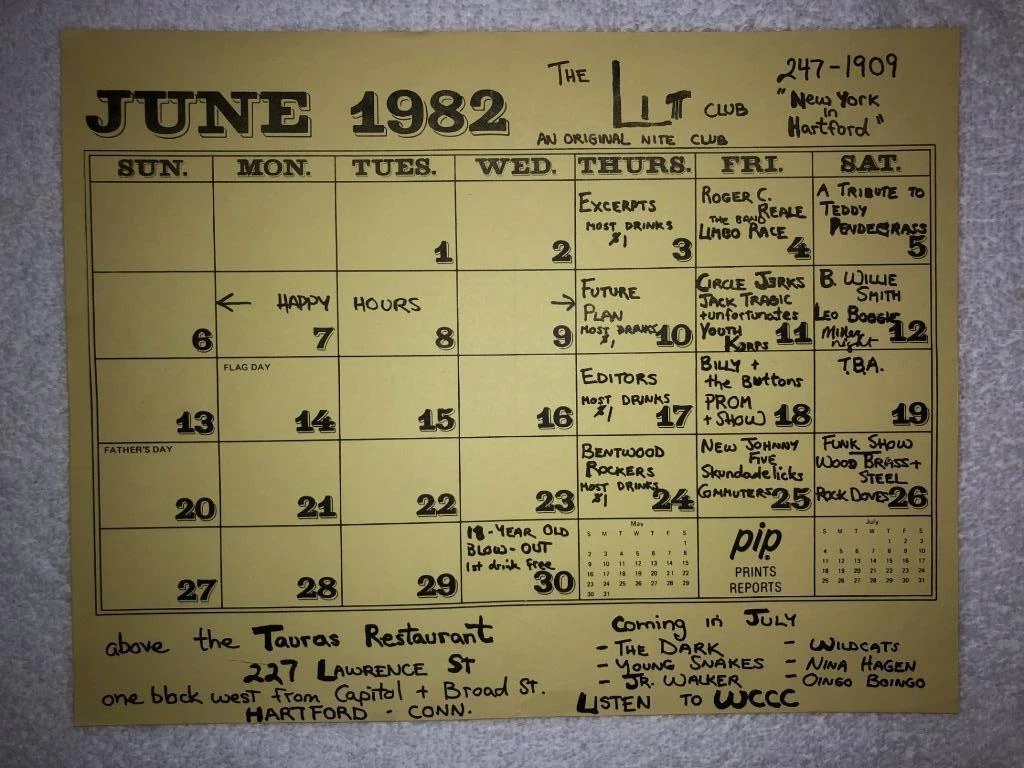 THE LIT CLUB
AN ORIGINAL NITE CLUB
247-1909
"NEW YORK
in
Hartford"
JUNE 1982
SUN. MON. TUES. WED. THURS. FRI. SAT.
1
2
EXCERPTS
MOST DRINKS
$1
3
ROGER C.
REALE
THE BAND
LIMBO RACE
4
A TRIBUTE TO
TEDDY
PENDEGRASS
5
6
← HAPPY HOURS →
7
8
9
FUTURE
PLAN
MOST DRINKS
$1
10
CIRCLE JERKS
JACK TRAGIC
+unfortunates
YOUTH
KORPS
11
B. WILLIE
SMITH
LEO BOOGIE
Miller
night
12
13
FLAG DAY
14
15
16
EDITORS
MOST DRINKS
$1
17
BILLY +
the Buttons
PROM
+ SHOW
18
T.B.A.
19
FATHER'S DAY
20
21
22
23
BENTWOOD
ROCKERS
MOST DRINKS
$1
24
NEW JOHNNY
FIVE
Skundadelicks
COMMUTERS
25
FUNK SHOW
WOOD BRASS+
STEEL
ROCK DOVES
26
27
28
29
18-YEAR OLD
BLOW-OUT
1st drink free
30
May
S M T W T F S
1
2 3 4 5 6 7 8
9 10 11 12 13 14 15
16 17 18 19 20 21 22
23 24 25 26 27 28 29
30 31
pip
PRINTS
REPORTS
July
S M T W T F S
1 2 3
4 5 6 7 8 9 10
11 12 13 14 15 16 17
18 19 20 21 22 23 24
25 26 27 28 29 30 31
above the Tauras Restaurant
227 LAWRENCE ST
one block west from Capitol + Broad St.
HARTFORD - CONN.
Coming in JULY
- THE DARK
- YOUNG SNAKES
- JR. WALKER
- WILDCATS
- NINA HAGEN
- OINGO BOINGO
LISTEN TO WCCC